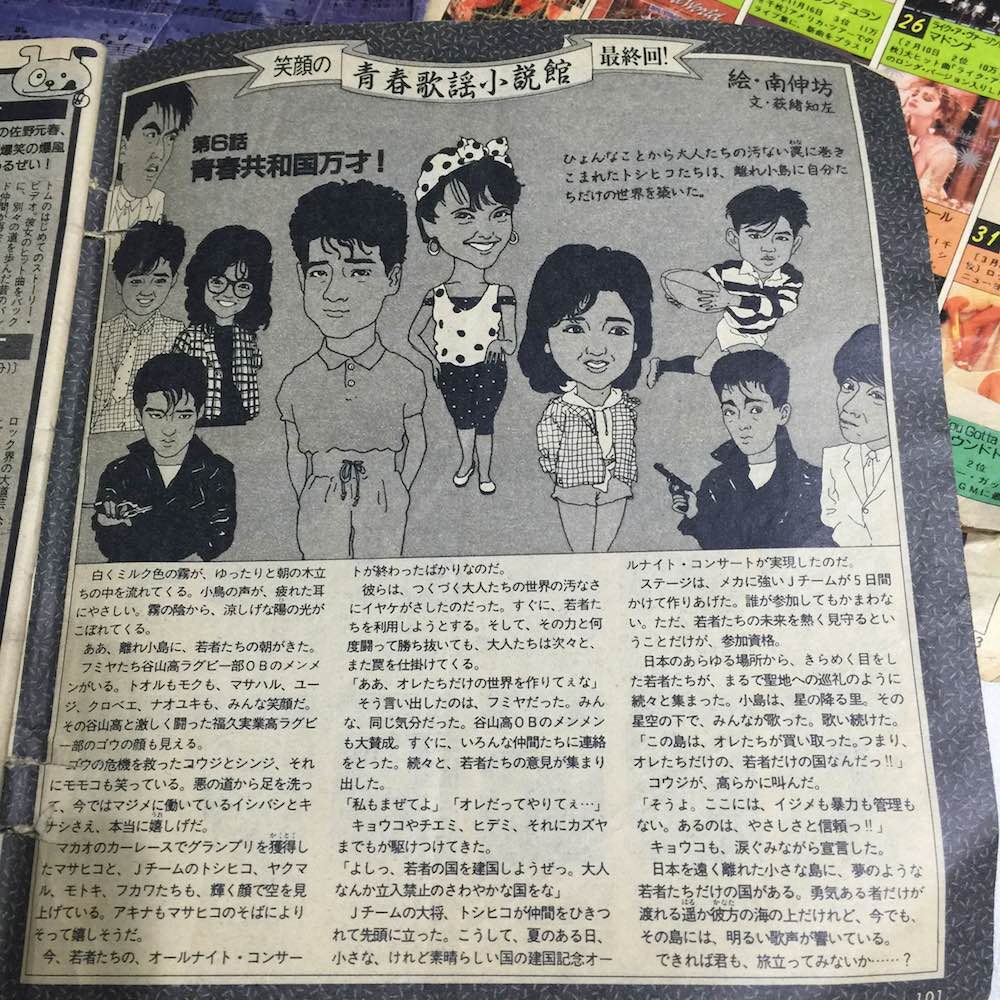 笑顔の
青春歌謡小説館
最終回!
絵・南伸坊
文・荻緒知左
第6話
青春共和国万才!
ひょんなことから大人たちの汚ない罠に巻き
こまれたトシヒコたちは、離れ小島に自分た
ちだけの世界を築いた。
白くミルク色の霧が、ゆったりと朝の木立
ちの中を流れてくる。小鳥の声が、疲れた耳
にやさしい。霧の陰から、涼しげな陽の光が
こぼれてくる。
ああ、離れ小島に、若者たちの朝がきた。
フミヤたち谷山高ラグビー部OBのメンメ
ンがいる。トオルもモクも、マサハル、ユー
ジ、クロベエ、ナオユキも、みんな笑顔だ。
その谷山高と激しく闘った福久実業高ラグビ
ー部のゴウの顔も見える。
ゴウの危機を救ったコウジとシンジ、それ
にモモコも笑っている。悪の道から足を洗っ
て、今ではマジメに働いているイシバシとキ
ナシさえ、本当に嬉しげだ。
マカオのカーレースでグランプリを獲得し
たマサヒコと、Jチームのトシヒコ、ヤクマ
ル、モトキ、フカワたちも、輝く顔で空を見
上げている。アキナもマサヒコのそばにより
そって嬉しそうだ。
今、若者たちの、オールナイト・コンサー
トが終わったばかりなのだ。
彼らは、つくづく大人たちの世界の汚なさ
にイヤケがさしたのだった。すぐに、若者た
ちを利用しようとする。そして、その力と何
度闘って勝ち抜いても、大人たちは次々と、
また罠を仕掛けてくる。
「ああ、オレたちだけの世界を作りてぇな」
そう言い出したのは、フミヤだった。みん
な、同じ気分だった。谷山高OBのメンメン
も大賛成。すぐに、いろんな仲間たちに連絡
をとった。続々と、若者たちの意見が集まり
出した。
「私もまぜてよ」「オレだってやりてぇ…」
キョウコやチエミ、ヒデミ、それにカズヤ
までもが駆けつけてきた。
「よしっ、若者の国を建国しようぜっ。大人
なんか立入禁止のさわやかな国をな」
Jチームの大将、トシヒコが仲間をひきつ
れて先頭に立った。こうして、夏のある日、
小さな、けれど素晴らしい国の建国記念オー
ルナイト・コンサートが実現したのだ。
ステージは、メカに強いJチームが5日間
かけて作りあげた。誰が参加してもかまわな
い。ただ、若者たちの未来を熱く見守るとい
うことだけが、参加資格。
日本のあらゆる場所から、きらめく目をし
た若者たちが、まるで聖地への巡礼のように
続々と集まった。小島は、星の降る里。その
星空の下で、みんなが歌った。歌い続けた。
「この島は、オレたちが買い取った。つまり、
オレたちだけの、若者だけの国なんだっ!!」
コウジが、高らかに叫んだ。
「そうよ。ここには、イジメも暴力も管理も
ない。あるのは、やさしさと信頼っ!!」
キョウコも、涙ぐみながら宣言した。
日本を遠く離れた小さな島に、夢のような
若者たちだけの国がある。勇気ある者だけが
渡れる遥か彼方の海の上だけれど、今でも、
その島には、明るい歌声が響いている。
できれば君も、旅立ってみないか……?
の佐野元春、
爆笑の爆風
るぜい!
トムのはじめてのストーリー
ビデオ。彼女のヒット曲をバック
ロック界の大道芸
26
マドンナ
(2月10日
2位 10万
31